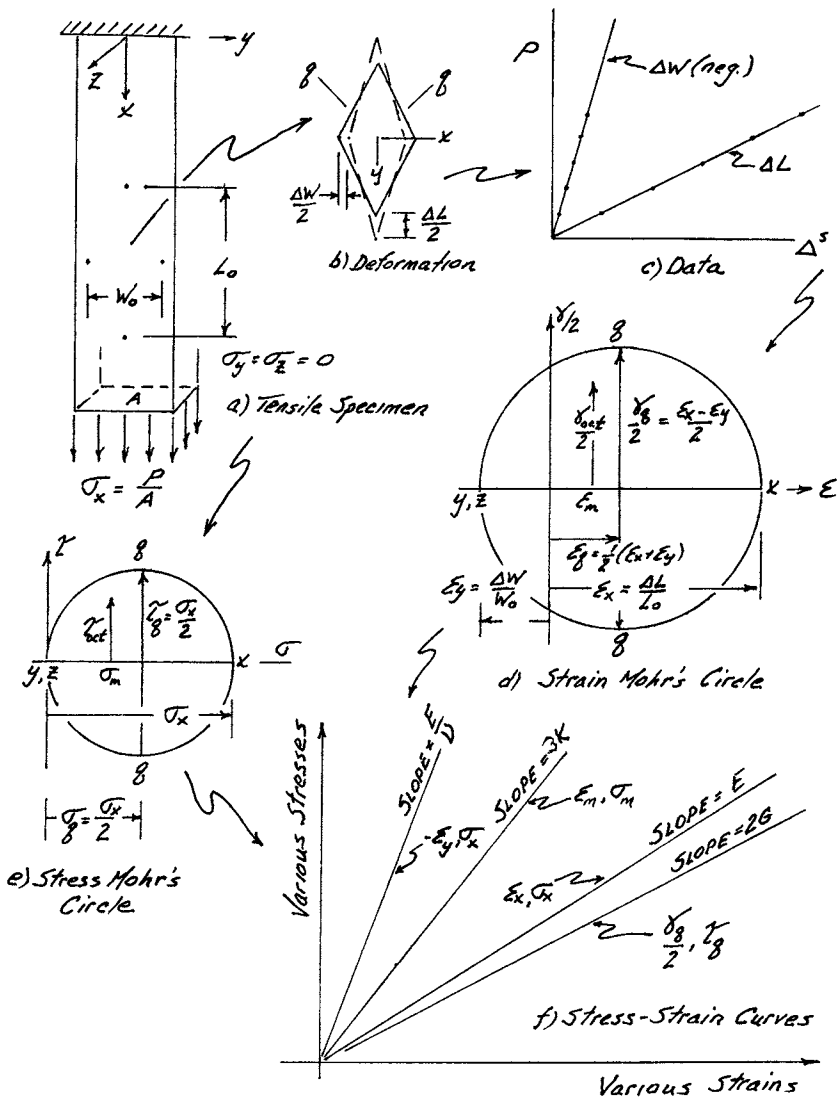 y
z
x
W₀
L₀
σy = σz = 0
A
a) Tensile Specimen
σx = P/A
q
q
x
y
ΔW/2
ΔL/2
b) Deformation
P
ΔW (neg.)
ΔL
Δˢ
c) Data
γ/2
q
γoct/2
γq/2 = (εx-εy)/2
y, z
εm
x
ε
εq = ½(εx+εy)
εy = ΔW/W₀
εx = ΔL/L₀
q
d) Strain Mohr's Circle
τ
q
τoct
τq = σx/2
y, z
σm
x
σ
σx
q
σq = σx/2
e) Stress Mohr's
Circle
Various Stresses
SLOPE = E/υ
SLOPE = 3K
εm, σm
-εy, σx
SLOPE = E
SLOPE = 2G
εx, σx
γq/2, τq
f) Stress-Strain Curves
Various Strains